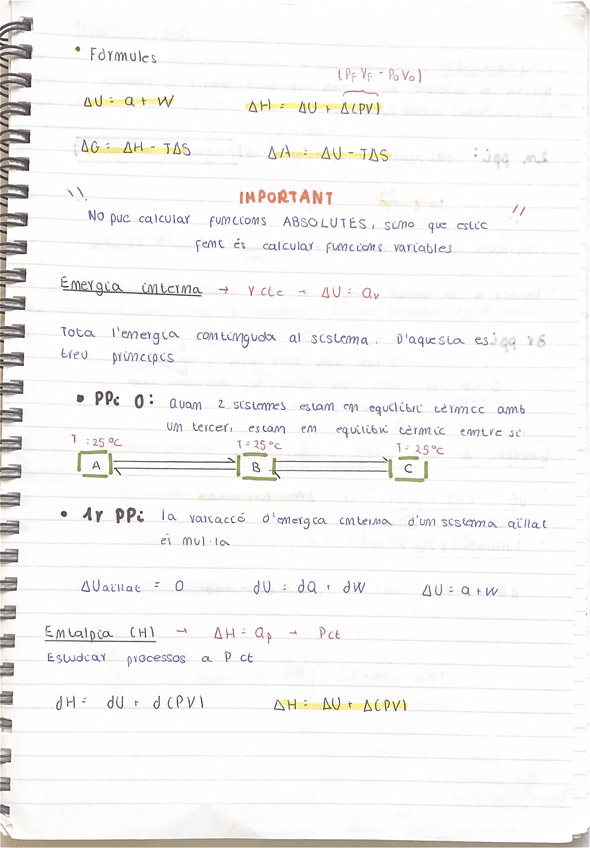 • Fórmules
(PF VF - P0 V0)
ΔU = Q + W ΔH = ΔU + Δ(PV)
ΔG = ΔH - TΔS ΔA = ΔU - TΔS
IMPORTANT
No puc calcular funcions ABSOLUTES, sino que estic
fent és calcular funcions variables
Energia interna → V cte → ΔU = Qv
Tota l'energia continguda al sistema. D'aquesta es
treu principis
• PPi 0: Quan 2 sistemes estan en equilibri tèrmic amb
un tercer, estan em equilibri tèrmic entre si
T = 25 ºC T = 25 ºC T = 25 ºC
A B C
• 1r PPi la variacció d'energia interna d'un sistema aïllat
és nul·la
ΔUaïllat = 0 dU = dQ + dW ΔU = Q + W
Entalpia (H) → ΔH = Qp → P ct
Estudiar processos a P ct
dH = dU + d(PV) ΔH = ΔU + Δ(PV)